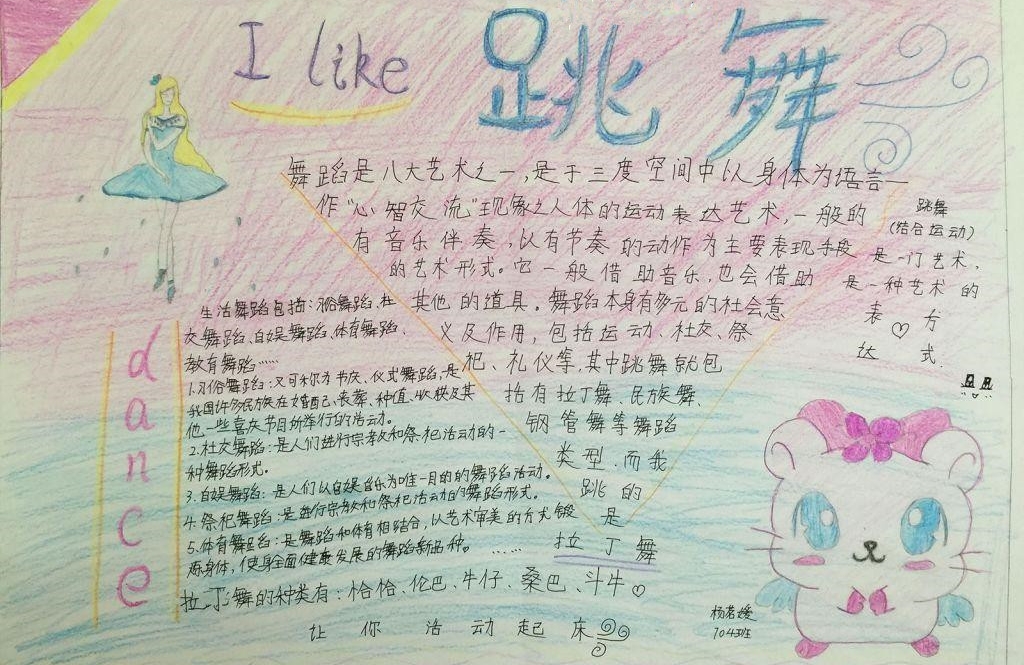 I like 跳舞
舞蹈是八大艺术之一,是于三度空间中以身体为语言
作“心智交流”现象之人体的运动表达艺术,一般的
有音乐伴奏,以有节奏的动作为主要表现手段
的艺术形式。它一般借助音乐,也会借助
其他的道具。舞蹈本身有多元的社会意
义及作用,包括运动、社交、祭
祀、礼仪等,其中跳舞就包
括有拉丁舞、民族舞、
钢管舞等舞蹈
类型.而我
跳的
是
拉丁舞
跳舞
(结合运动)
是一门艺术,
是一种艺术的
表♡方
达 式.
dance
生活舞蹈包括:习俗舞蹈、社
交舞蹈、自娱舞蹈、体育舞蹈、
教育舞蹈……
1.习俗舞蹈:又可称为节庆、仪式舞蹈,是
我国许多民族在婚配、丧葬、种值、收获及其
他一些喜庆节目所举行的活动。
2.社交舞蹈:是人们进行宗教和祭祀活动的一
种舞蹈形式。
3.自娱舞蹈:是人们以自娱自乐为唯一目的的舞蹈活动。
4.祭祀舞蹈:是进行宗教和祭祀活动的舞蹈形式。
5.体育舞蹈:是舞蹈和体育相结合,以艺术审美的方式锻
炼身体,使身全面健康发展的舞蹈新品种。 ……
拉丁舞的种类有:恰恰、伦巴、牛仔、桑巴、斗牛♡
让你活动起床
杨茗媛
704班